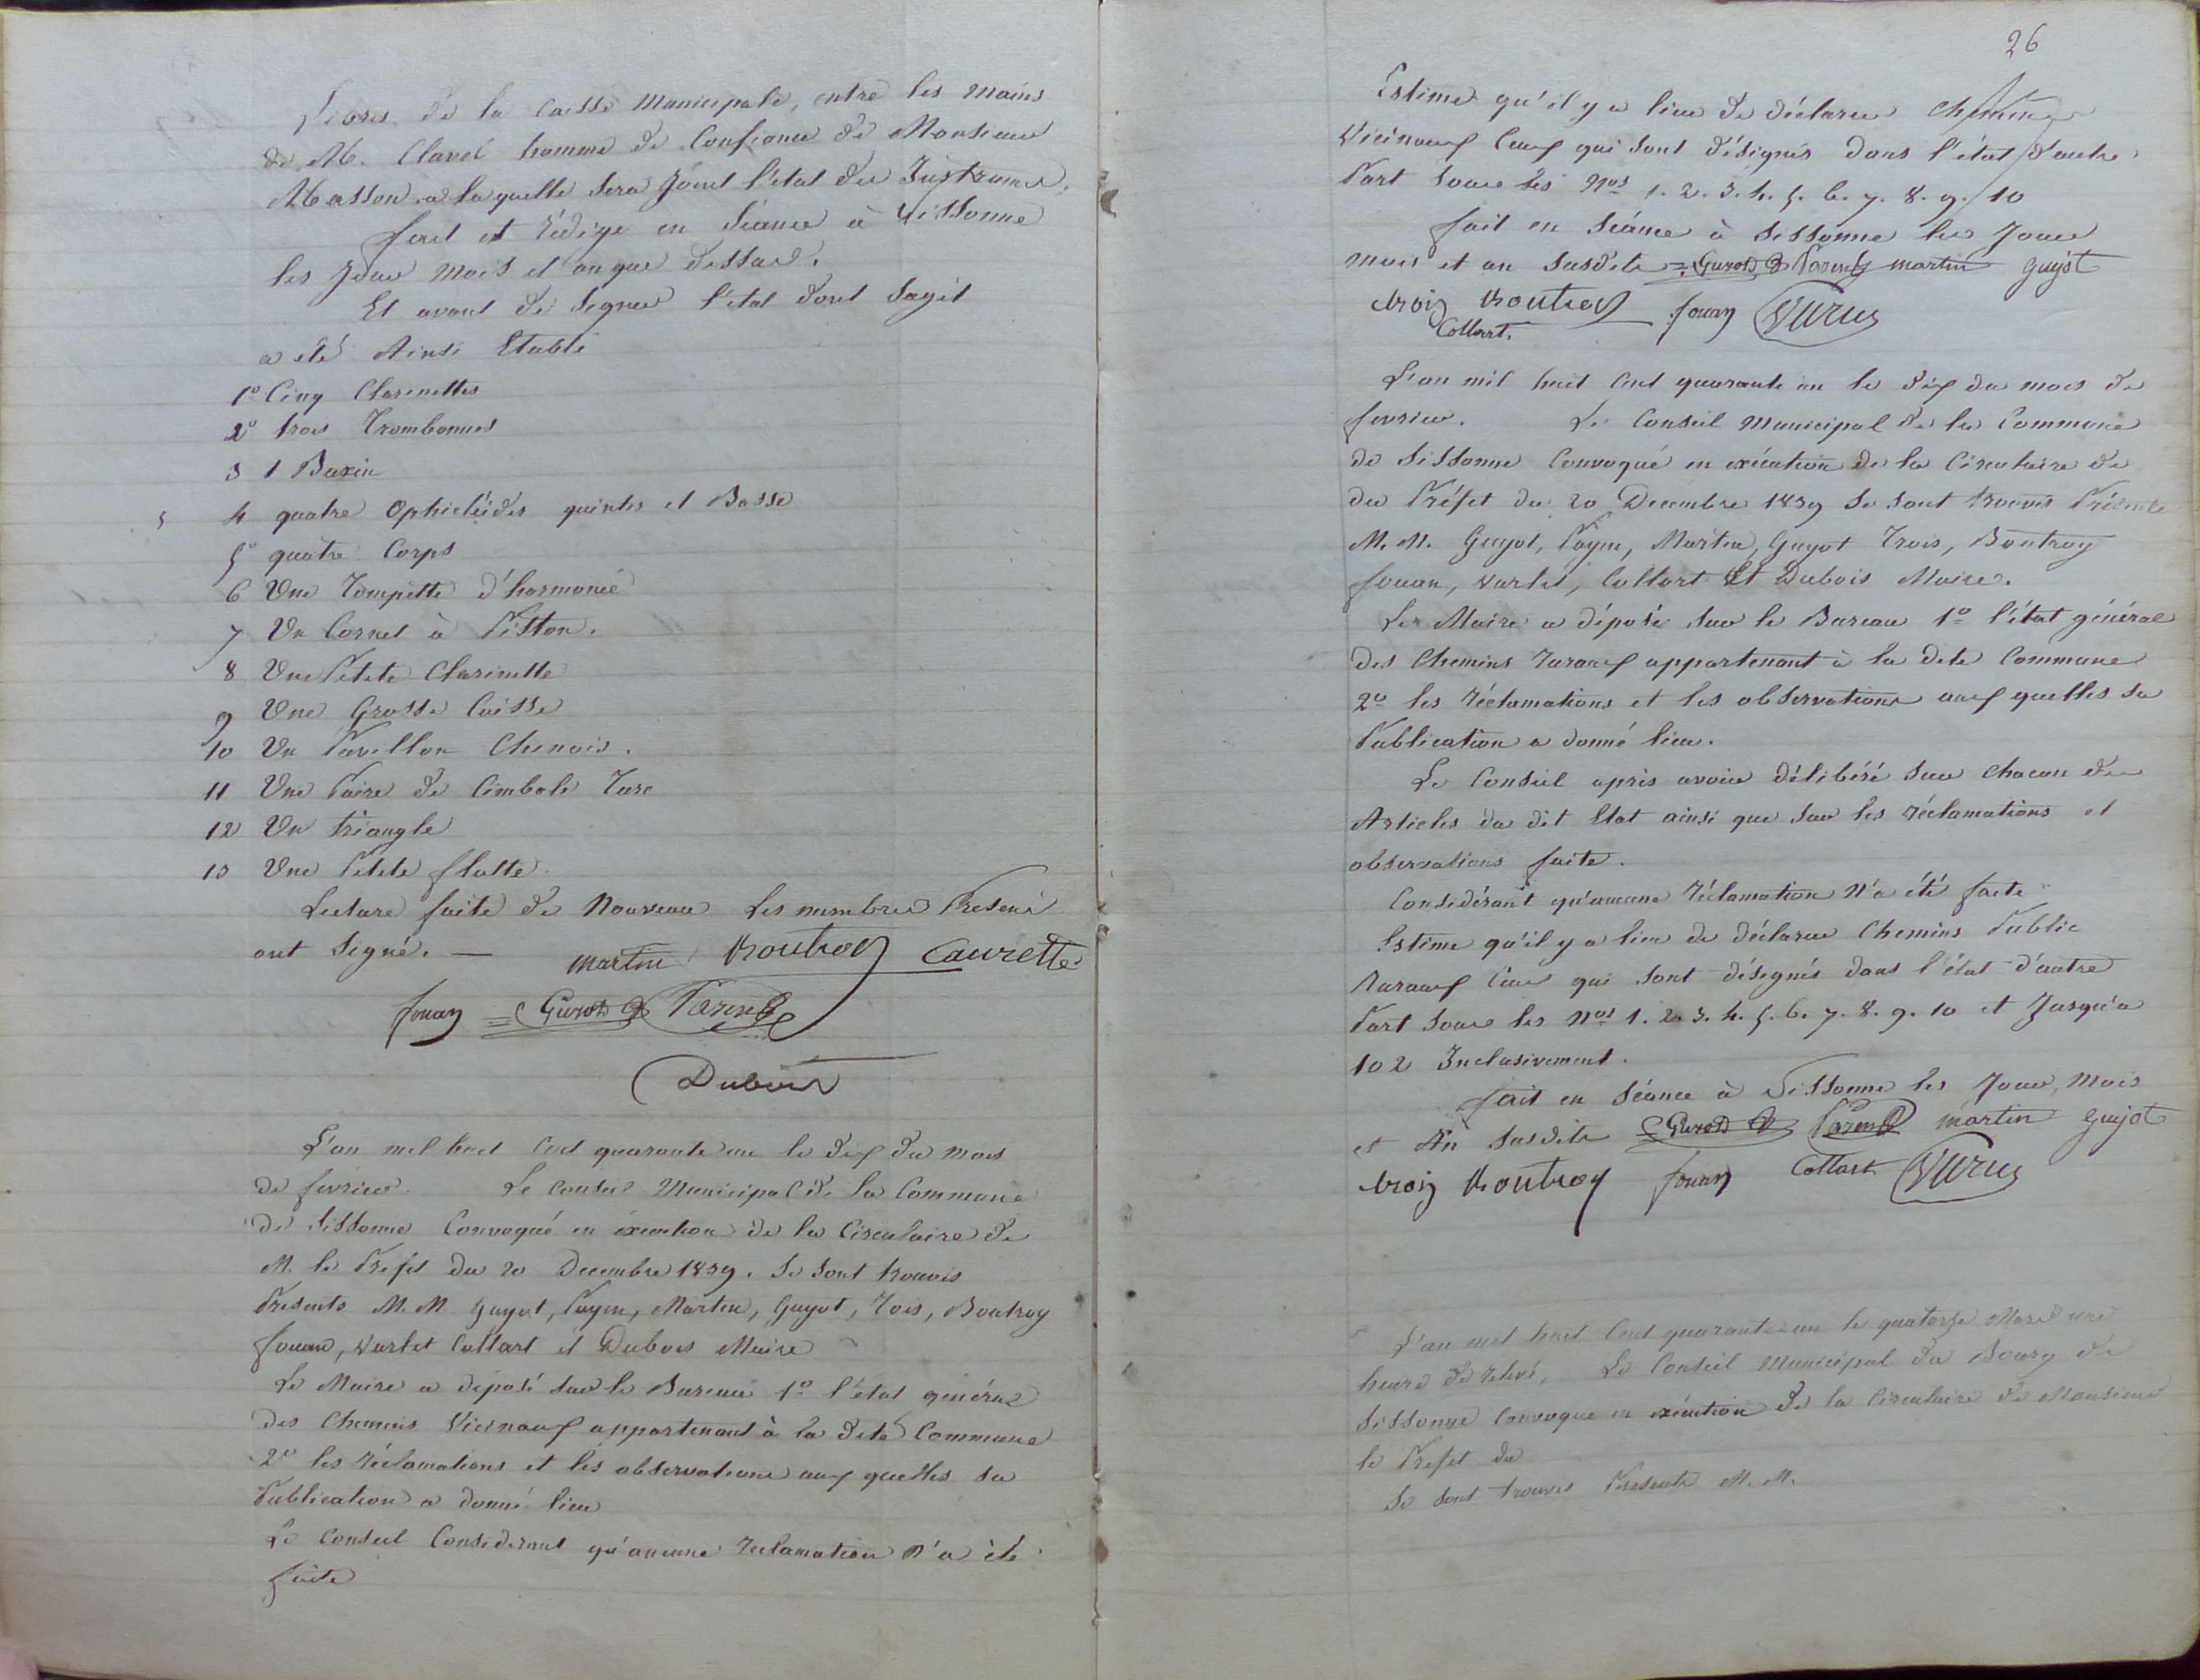 de la Caisse Municipale, entre les mains
de M. Clavel homme de Confiance de Monsieur
Masson a laquelle sera Joint l'état des Instrumes.
fait et rédigé en Séance à Sissonne
les Jour Mois et an que dessus.
Et avant de Signer l'état dont Sagit
a été Ainsi Etabli
1º Cinq Clarinettes
2º trois Trombonnes
3 1 Baxin
5 4 quatre Ophicléides quintes et Basse
5º quatre Corps
6 Une Tompette d'harmonie
7 Un Cornet à Piston.
8 Une Petite Clarinette
9 Une Grosse Caisse
10 Un Pavillon Chinois.
11 Une Paire de Cimbale Turc
12 Un triangle
13 Une Petite flutte
Lecture faite de Nouveau Les membres Present
ont Signé. — martin Boutroy Caurette
fouan Guyot Parent
Dubois
L'an mil huit Cent quarante un le dix du mois
de fevrier. Le Conseil Municipal de la Commune
de Sissonne Convoqué en éxecution de la Circulaire de
M. le Prefet du 20 Decembre 1839. Se Sont trouvés
Presents M. M Guyot, Payen, Martin, Guyot, Tois, Boutroy
fouan, Varlet Cottart et Dubois Maire
Le Maire a déposé sur le Bureau 1º l'état général
des Chemins Vicinaux appartenant à la dite Commune
2º les réclamations et les observations aux quelles sa
Publication a donné lieu
Le Conseil Considerant qu'aucune reclamation N'a été
faite
26
Estime qu'il y a lieu de déclarer Chemins
Vicinaux Ceux qui sont désignés dans l'état d'autre
Part Sous les Nos 1. 2. 3. 4. 5. 6. 7. 8. 9. 10
fait en Séance à Sissonne les Jour
mois et an Susdits Guyot Parent martin guyot
troiy Boutroy fouan
Cottart.
L'an mil huit Cent quarante un le dix du mois de
fevrier. Le Conseil Municipal de la Commune
de Sissonne Convoqué en exécution de la Circulaire de
du Préfet du 20 Decembre 1839 Se Sont trouvés Présents
M. M. Guyot, Payen, Martin, Guyot Trois, Boutroy
fouan, Varlet, Cottart Et Dubois Maire.
Le Maire a déposé Sur le Bureau 1º l'état général
des Chemins ruraux appartenant à la dite Commune
2º les réclamations et les observations aux quelles sa
Publication a donné lieu.
Le Conseil après avoir délibéré Sur chacun des
Articles du dit Etat ainsi que Sur les réclamations et
observations faite.
Considérant qu'aucune réclamation N'a été faite
Estime qu'il y a lieu de déclarer Chemins Public
ruraux Ceux qui sont désignés dans l'état d'autre
Part Sous les Nos 1. 2. 3. 4. 5. 6. 7. 8. 9. 10 et Jusqu'a
102 Inclusivement.
fait en Séance à Sissonne les Jour, Mois
et An Susdits Guyot Parent martin guyot
troiy Boutroy fouan Cottart
L'an mil huit Cent quarante un le quatorze Mars une
heure de relevé, Le Conseil Municipal du Bourg de
Sissonne Convoque en exécution de la Circulaire de Monsieur
le Prefet du
Se Sont trouvés Presents M. M.